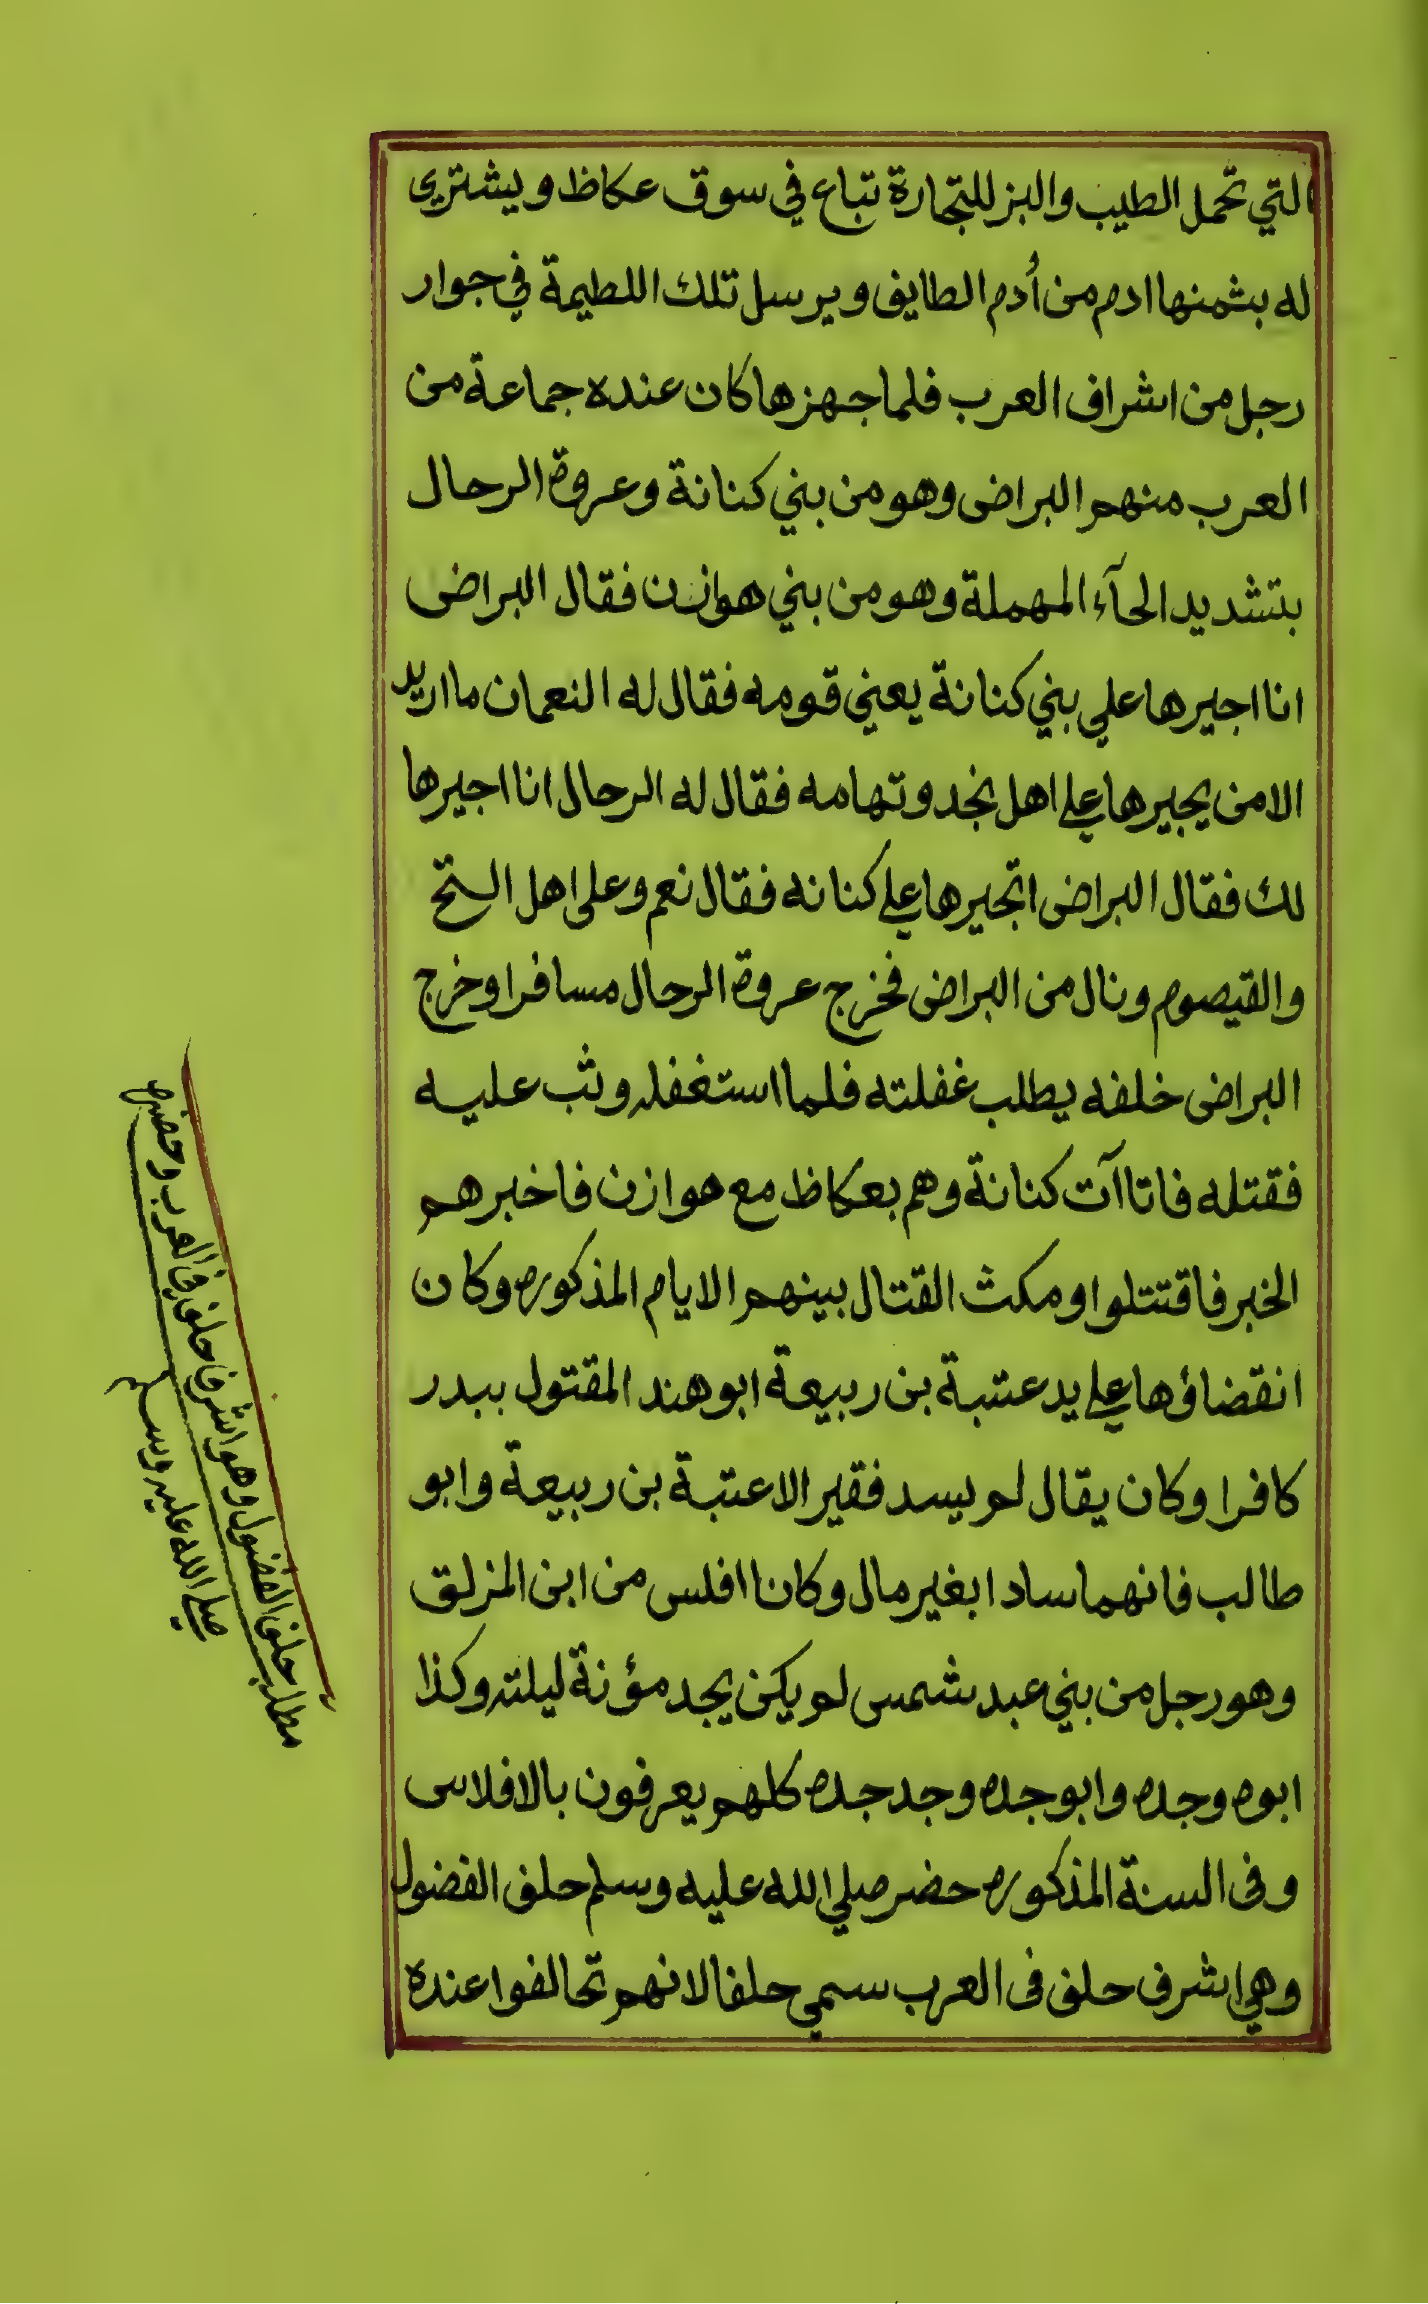 التي تحمل الطيب والبز للتجارة تباع في سوق عكاظ ويشترى
له بثمنها ادم من أدم الطايف ويرسل تلك اللطيمة في جوار
رجل من اشراف العرب فلما جهزها كان عنده جماعة من
العرب منهم البراض وهو من بني كنانة وعروة الرحال
بتشديد الحآء المهملة وهو من بني هوازن فقال البراض
انا اجيرها علي بني كنانة يعني قومه فقال له النعمان ما اريد
الا من يجيرها علي اهل نجد وتهامه فقال له الرحال انا اجيرها
لك فقال البراض اتجيرها علي كنانه فقال نعم وعلى اهل الشح
والقيصوم ونال من البراض فخرج عروة الرحال مسافرا وخرج
البراض خلفه يطلب غفلته فلما استغفله وثب عليه
فقتله فاتاآت كنانة وهم بعكاظ مع هوازن فاخبرهم
الخبر فاقتتلوا ومكث القتال بينهم الايام المذكوره وكان
انقضاؤها علي يد عتبة بن ربيعة ابو هند المقتول ببدر
كافرا وكان يقال لم يسد فقير الا عتبة بن ربيعة وابو
طالب فانهما سادا بغير مال وكانا افلس من ابن المزلق
وهو رجل من بني عبد شمس لم يكن يجد مؤنة ليلته وكذا
ابوه وجده وابو جده وجد جده كلهم يعرفون بالافلاس
وفى السنة المذكوره حضر صلي الله عليه وسلم حلف الفضول
وهي اشرف حلف فى العرب سمي حلفا لانهم تحالفوا عنده
مطلب حلف الفضول وهو اشرف حلف فى العرب وحضره
صلي الله عليه وسلم